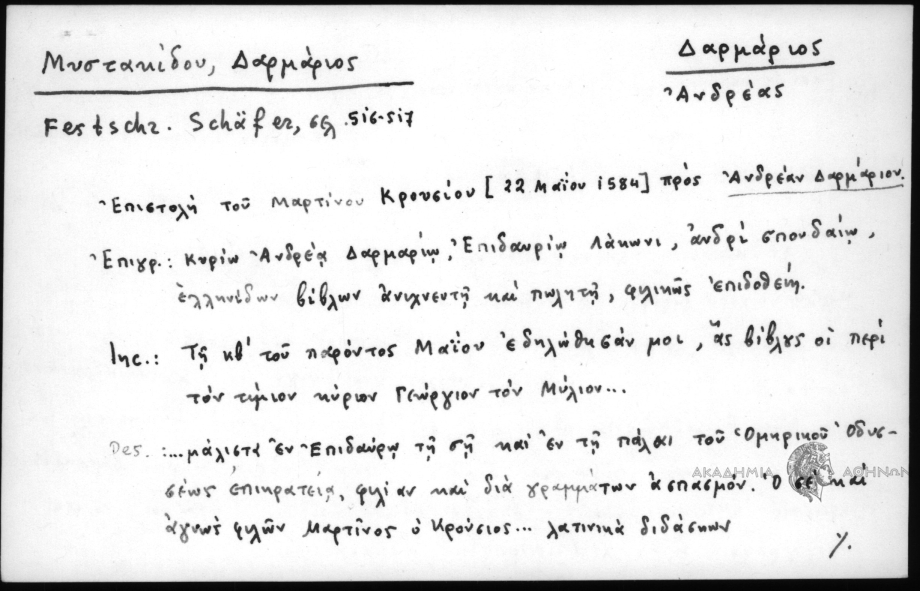 Μυστακίδου, Δαρμάριος
Δαρμάριος
Ἀνδρέας
Festschr. Schäfer, σς 516-517
Ἐπιστολὴ τοῦ Μαρτίνου Κρουσίου [22 Μαΐου 1584] πρὸς Ἀνδρέαν Δαρμάριον.
Ἐπιγρ.: Κυρίῳ Ἀνδρέᾳ Δαρμαρίῳ, Ἐπιδαυρίῳ Λάκωνι, ἀνδρὶ σπουδαίῳ,
ἑλληνίδων βίβλων ἀνιχνευτῇ καὶ πωλητῇ, φιλικῶς ἐπιδοθείη.
Inc.: Τῇ κβ' τοῦ παρόντος Μαΐου ἐδηλώθησάν μοι, ἃς βίβλους οἱ περὶ
τὸν τίμιον κύριον Γεώργιον τὸν Μύλιον...
Des.:...μάλιστα ἐν Ἐπιδαύρῳ τῇ σῇ καὶ ἐν τῇ πάλαι τοῦ Ὁμηρικοῦ Ὀδυσ-
σέως ἐπικρατείᾳ, φιλίαν καὶ διὰ γραμμάτων ἀσπασμόν. Ὁ σὲ καὶ
ἀγνὼς φιλῶν Μαρτῖνος ὁ Κρούσιος... λατινικὰ διδάσκων
ΑΚΑΔΗΜΙΑ ΑΘΗΝΩΝ